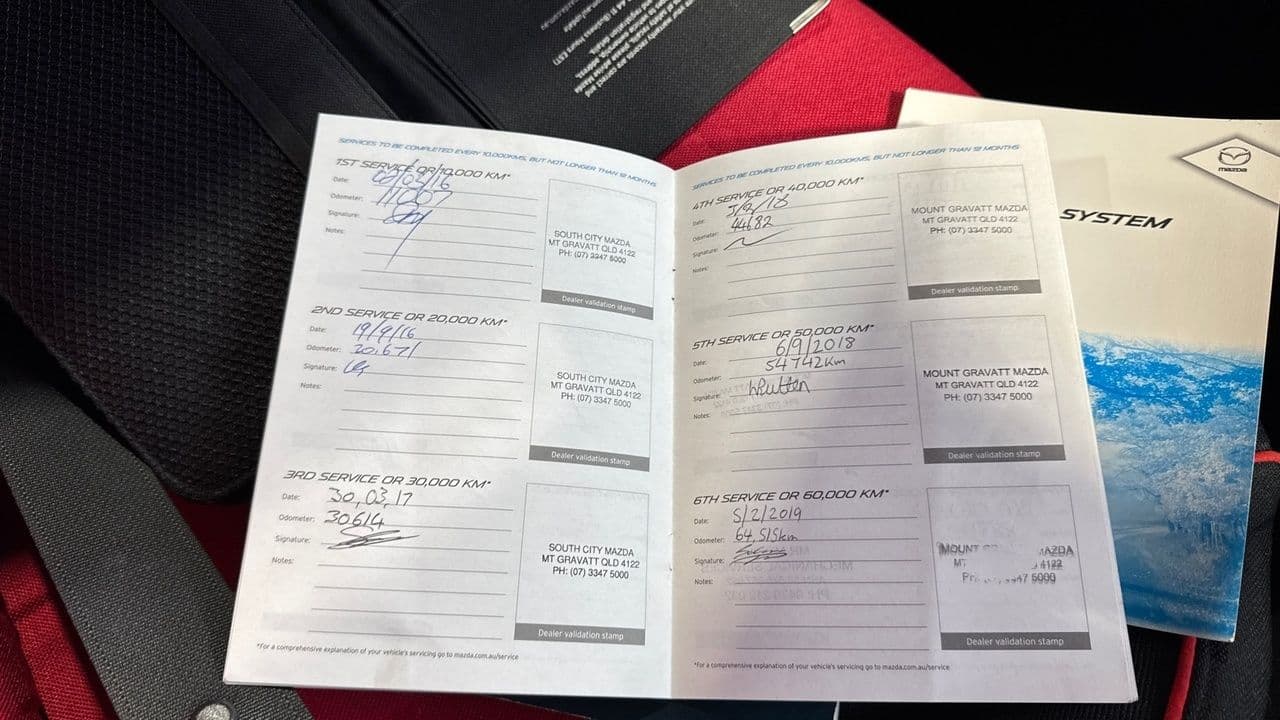 SERVICES TO BE COMPLETED EVERY 10,000KMS, BUT NOT LONGER THAN 12 MONTHS
1ST SERVICE OR 10,000 KM*
Date: 02/03/16
Odometer: 11067
Signature:
Notes:
SOUTH CITY MAZDA
MT GRAVATT QLD 4122
PH: (07) 3347 5000
Dealer validation stamp
2ND SERVICE OR 20,000 KM*
Date: 19/9/16
Odometer: 20,671
Signature:
Notes:
SOUTH CITY MAZDA
MT GRAVATT QLD 4122
PH: (07) 3347 5000
Dealer validation stamp
3RD SERVICE OR 30,000 KM*
Date: 30,03,17
Odometer: 30614
Signature:
Notes:
SOUTH CITY MAZDA
MT GRAVATT QLD 4122
PH: (07) 3347 5000
Dealer validation stamp
*For a comprehensive explanation of your vehicle's servicing go to mazda.com.au/service
SERVICES TO BE COMPLETED EVERY 10,000KMS, BUT NOT LONGER THAN 12 MONTHS
4TH SERVICE OR 40,000 KM*
Date:
Odometer: 44682
Signature:
Notes:
MOUNT GRAVATT MAZDA
MT GRAVATT QLD 4122
PH: (07) 3347 5000
Dealer validation stamp
5TH SERVICE OR 50,000 KM*
Date: 6/9/2018
Odometer: 54742km
Signature:
Notes:
MOUNT GRAVATT MAZDA
MT GRAVATT QLD 4122
PH: (07) 3347 5000
Dealer validation stamp
6TH SERVICE OR 60,000 KM*
Date: 5/2/2019
Odometer: 64,515km
Signature:
Notes:
MOUNT AZDA
MT 4122
347 5000
Dealer validation stamp
*For a comprehensive explanation of your vehicle's servicing go to mazda.com.au/service
mazda
SYSTEM